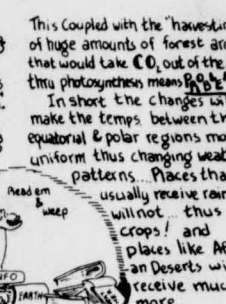 This Coupled with the "harvesti
of huge amounts of forest are
that would take CO2 out of the
thru photosynthesis means
In short the changes wi
make the temps. between th
equatorial & polar regions mo
uniform thus changing weat
patterns... Places tha
usually receive rain
will not... thus
crops! and
places like Af
an Deserts wi
receive muc
more
Read em
&
weep
NFO
EARTH